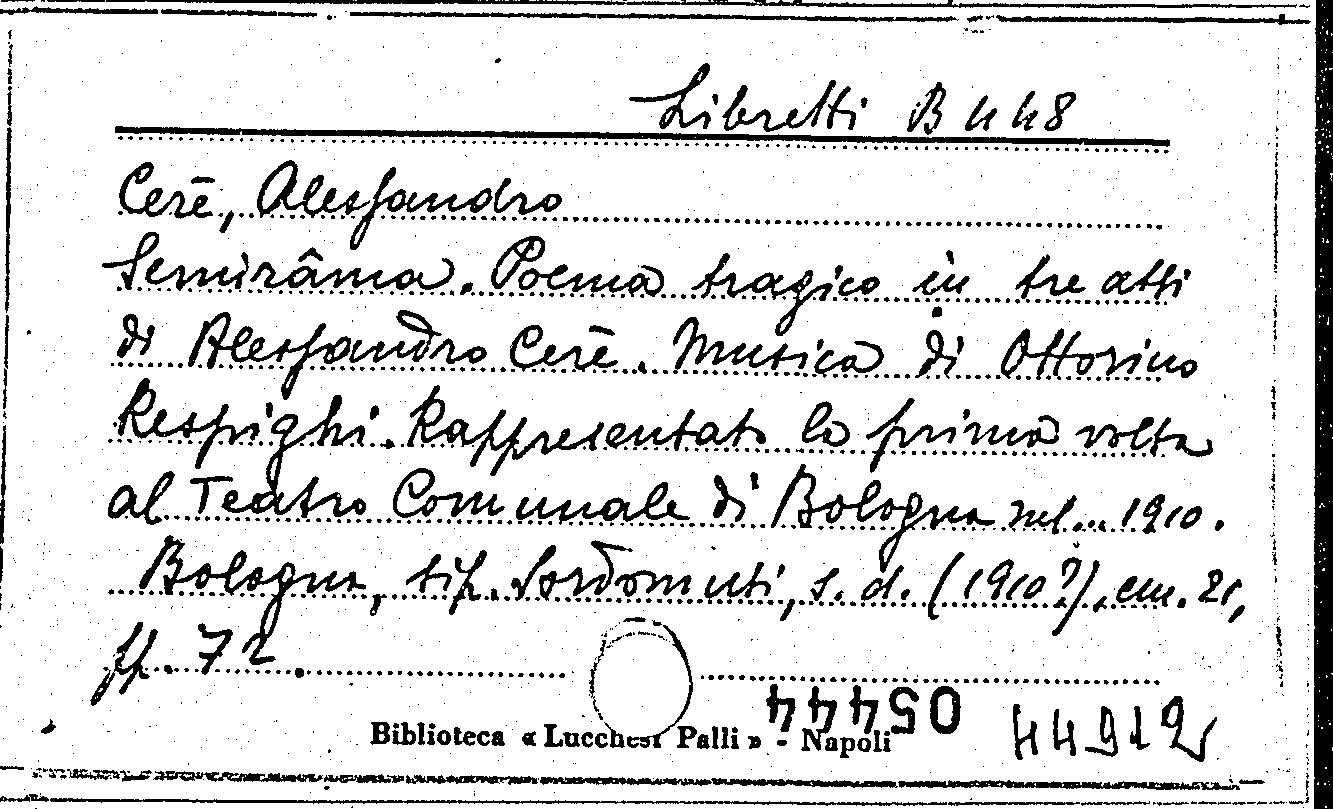 Libretti B 448
Cerē, Alessandro
Semirâma. Poema tragico in tre atti
di Alessandro Cerē. Musica di Ottorino
Respighi. Rappresentato la prima volta
al Teatro Comunale di Bologna nel... 1910.
Bologna, tip. Sordomuti, s. d. (1910?), cm. 21,
pp. 72.
05444
44912
Biblioteca « Lucchesi Palli » - Napoli